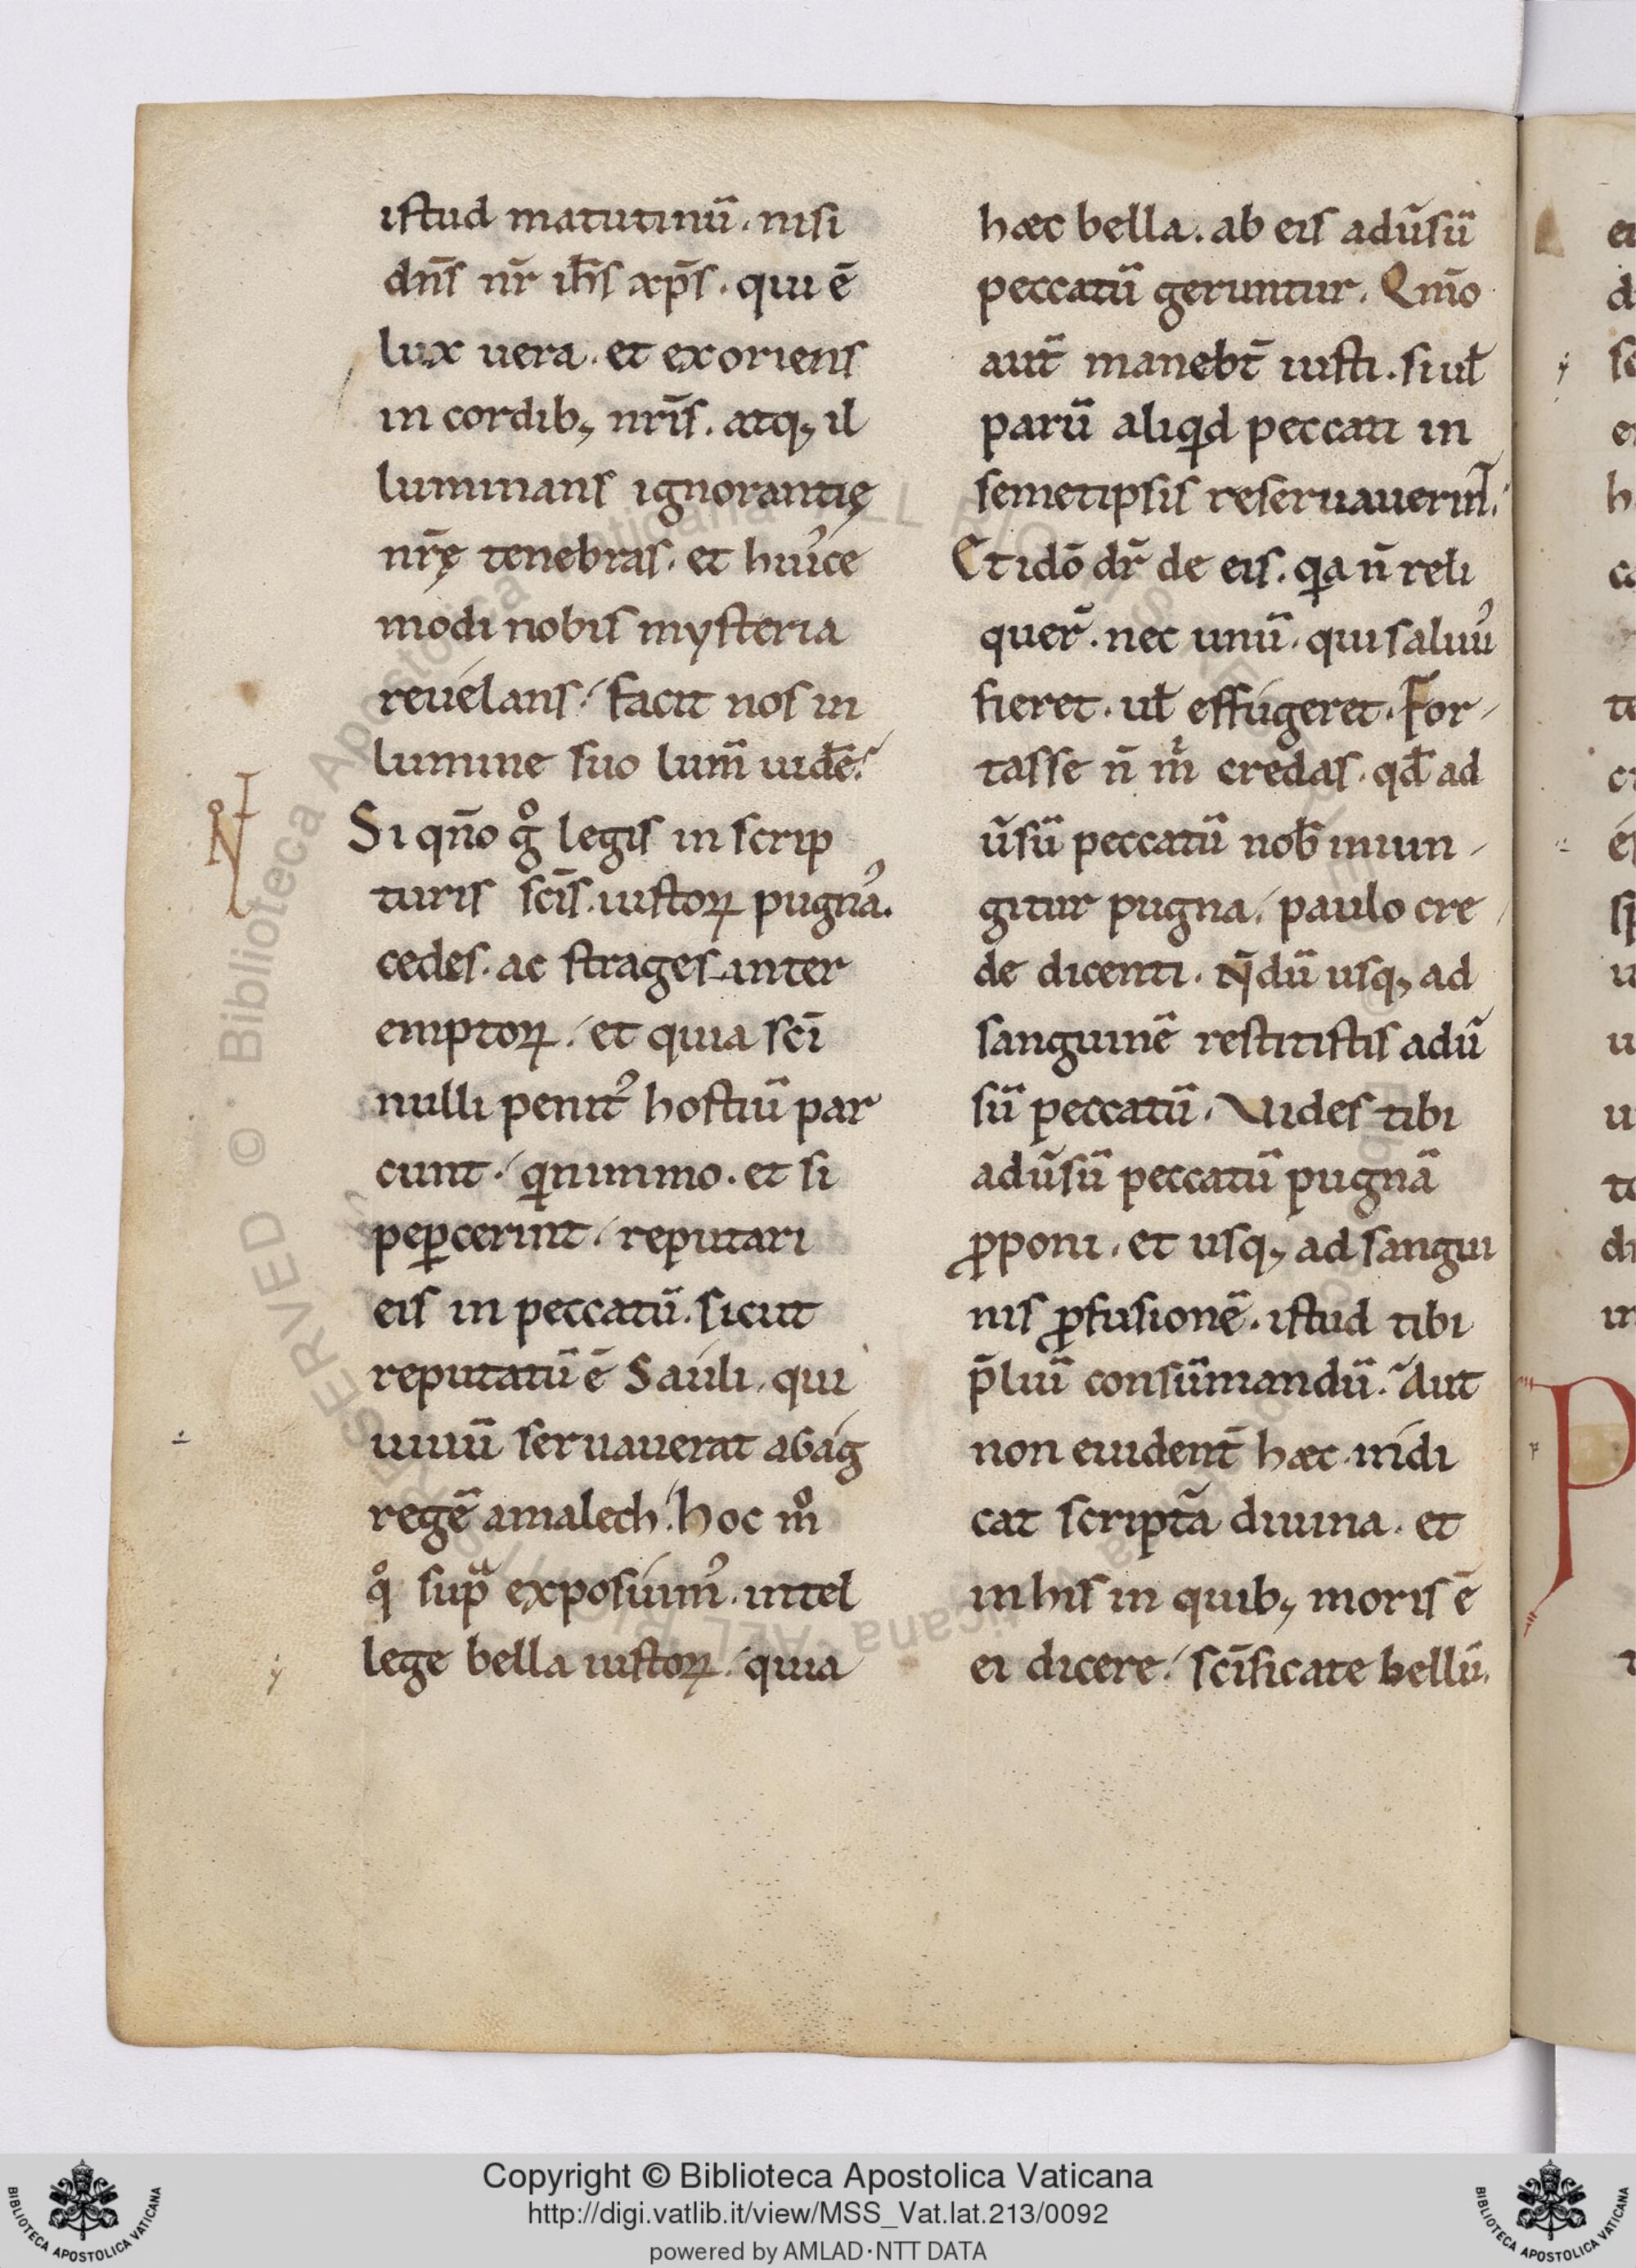 istud matutinū. nisi
dn̄s nr̄ ih̄s xp̄s. qui ē
lux uera. et exoriens
in cordibꝫ nrīs. atqꝫ il
luminans ignorantię
nr̄ę tenebras. et huiꝰce
modi nobis mysteria
reuelans. facit nos in
lumine suo lum̄ uidē.
Si qn̄o gͦ legis in scrip
turis sc̄is. iustoꝝ pugnaꝰ.
cedes. ac strages inter
emptoꝝ. et quia sc̄i
nulli penitꝰ hostiū par
cunt. qͥnimmo. et si
peꝑcerint. reputari
eis in peccatū. sicut
reputatū ē Sauli. qui
uiuū seruauerat abag
regē amalech. hoc mͦ
qͦ supᷓ exposuimꝰ. intel
lege bella iustoꝝ. quia
hæc bella. ab eis adūsū
peccatū geruntur. Qm̄o
aut̄ manebt̄ iusti. si ul̄
parū aliqͥd peccati in
semetipsis reseruauerint.
Et idō dr̄ de eis. qͥa n̄ reli
quer̄. nec unū. qui saluuꝰ
fieret. ul̄ effugeret. For
tasse n̄ mͥ credas. qd̄ ad
ūsū peccatū nob̄ iniun
gitur pugna. paulo cre
de dicenti. Nͦdū usqꝫ ad
sanguinē restitistis adū
sū peccatū. Vides tibi
adūsū peccatū pugnā
ꝓponi. et usqꝫ ad sangui
nis ꝓfusionē. istud tibi
p̄liū consūmandū. Aut
non euident̄ hæc indi
cat scriptᷓa diuina. et
in his in quibꝫ moris ē
ei dicere. sc̄ificate bellū.
Copyright © Biblioteca Apostolica Vaticana
http://digi.vatlib.it/view/MSS_Vat.lat.213/0092
powered by AMLAD·NTT DATA